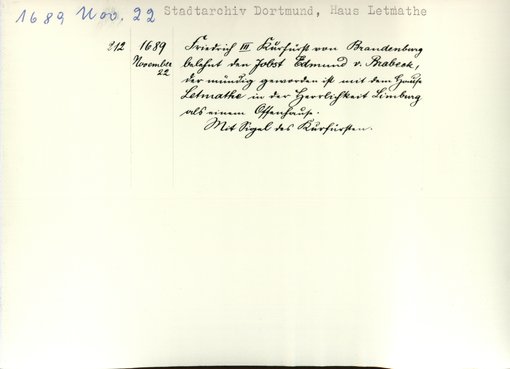 1689 Nov. 22
Stadtarchiv Dortmund, Haus Letmathe
312 1689
November
22
Friedrich III Kurfürst von Brandenburg
belehnt den Jobst Edmund v. Brabeck,
der mündig geworden ist mit dem Hause
Letmathe in der Herrlichkeit Limburg
als einem Offenhause.
Mit Sigel des Kurfürsten.